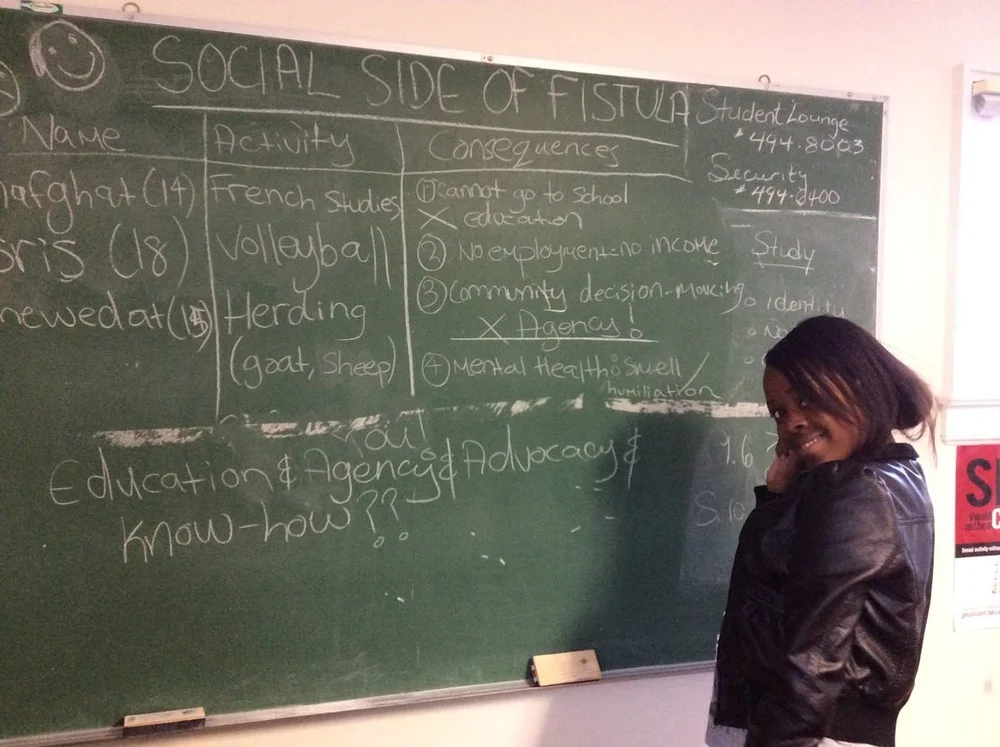 SOCIAL SIDE OF FISTULA
Name
Activity
Consequences
afghat (14)
French Studies
oris (18)
Volleyball
newedat (15)
Herding
(goat, Sheep)
① Cannot go to School
X education
② No employment-no income
③ Community decision-making
X Agency!
④ Mental Health: Smell/
humiliation
You!
Education & Agency & Advocacy &
Know-how??
Student Lounge
* 494-8003
Security
* 494-6400
Study
Identity
No
9.6
S. 10
S
C